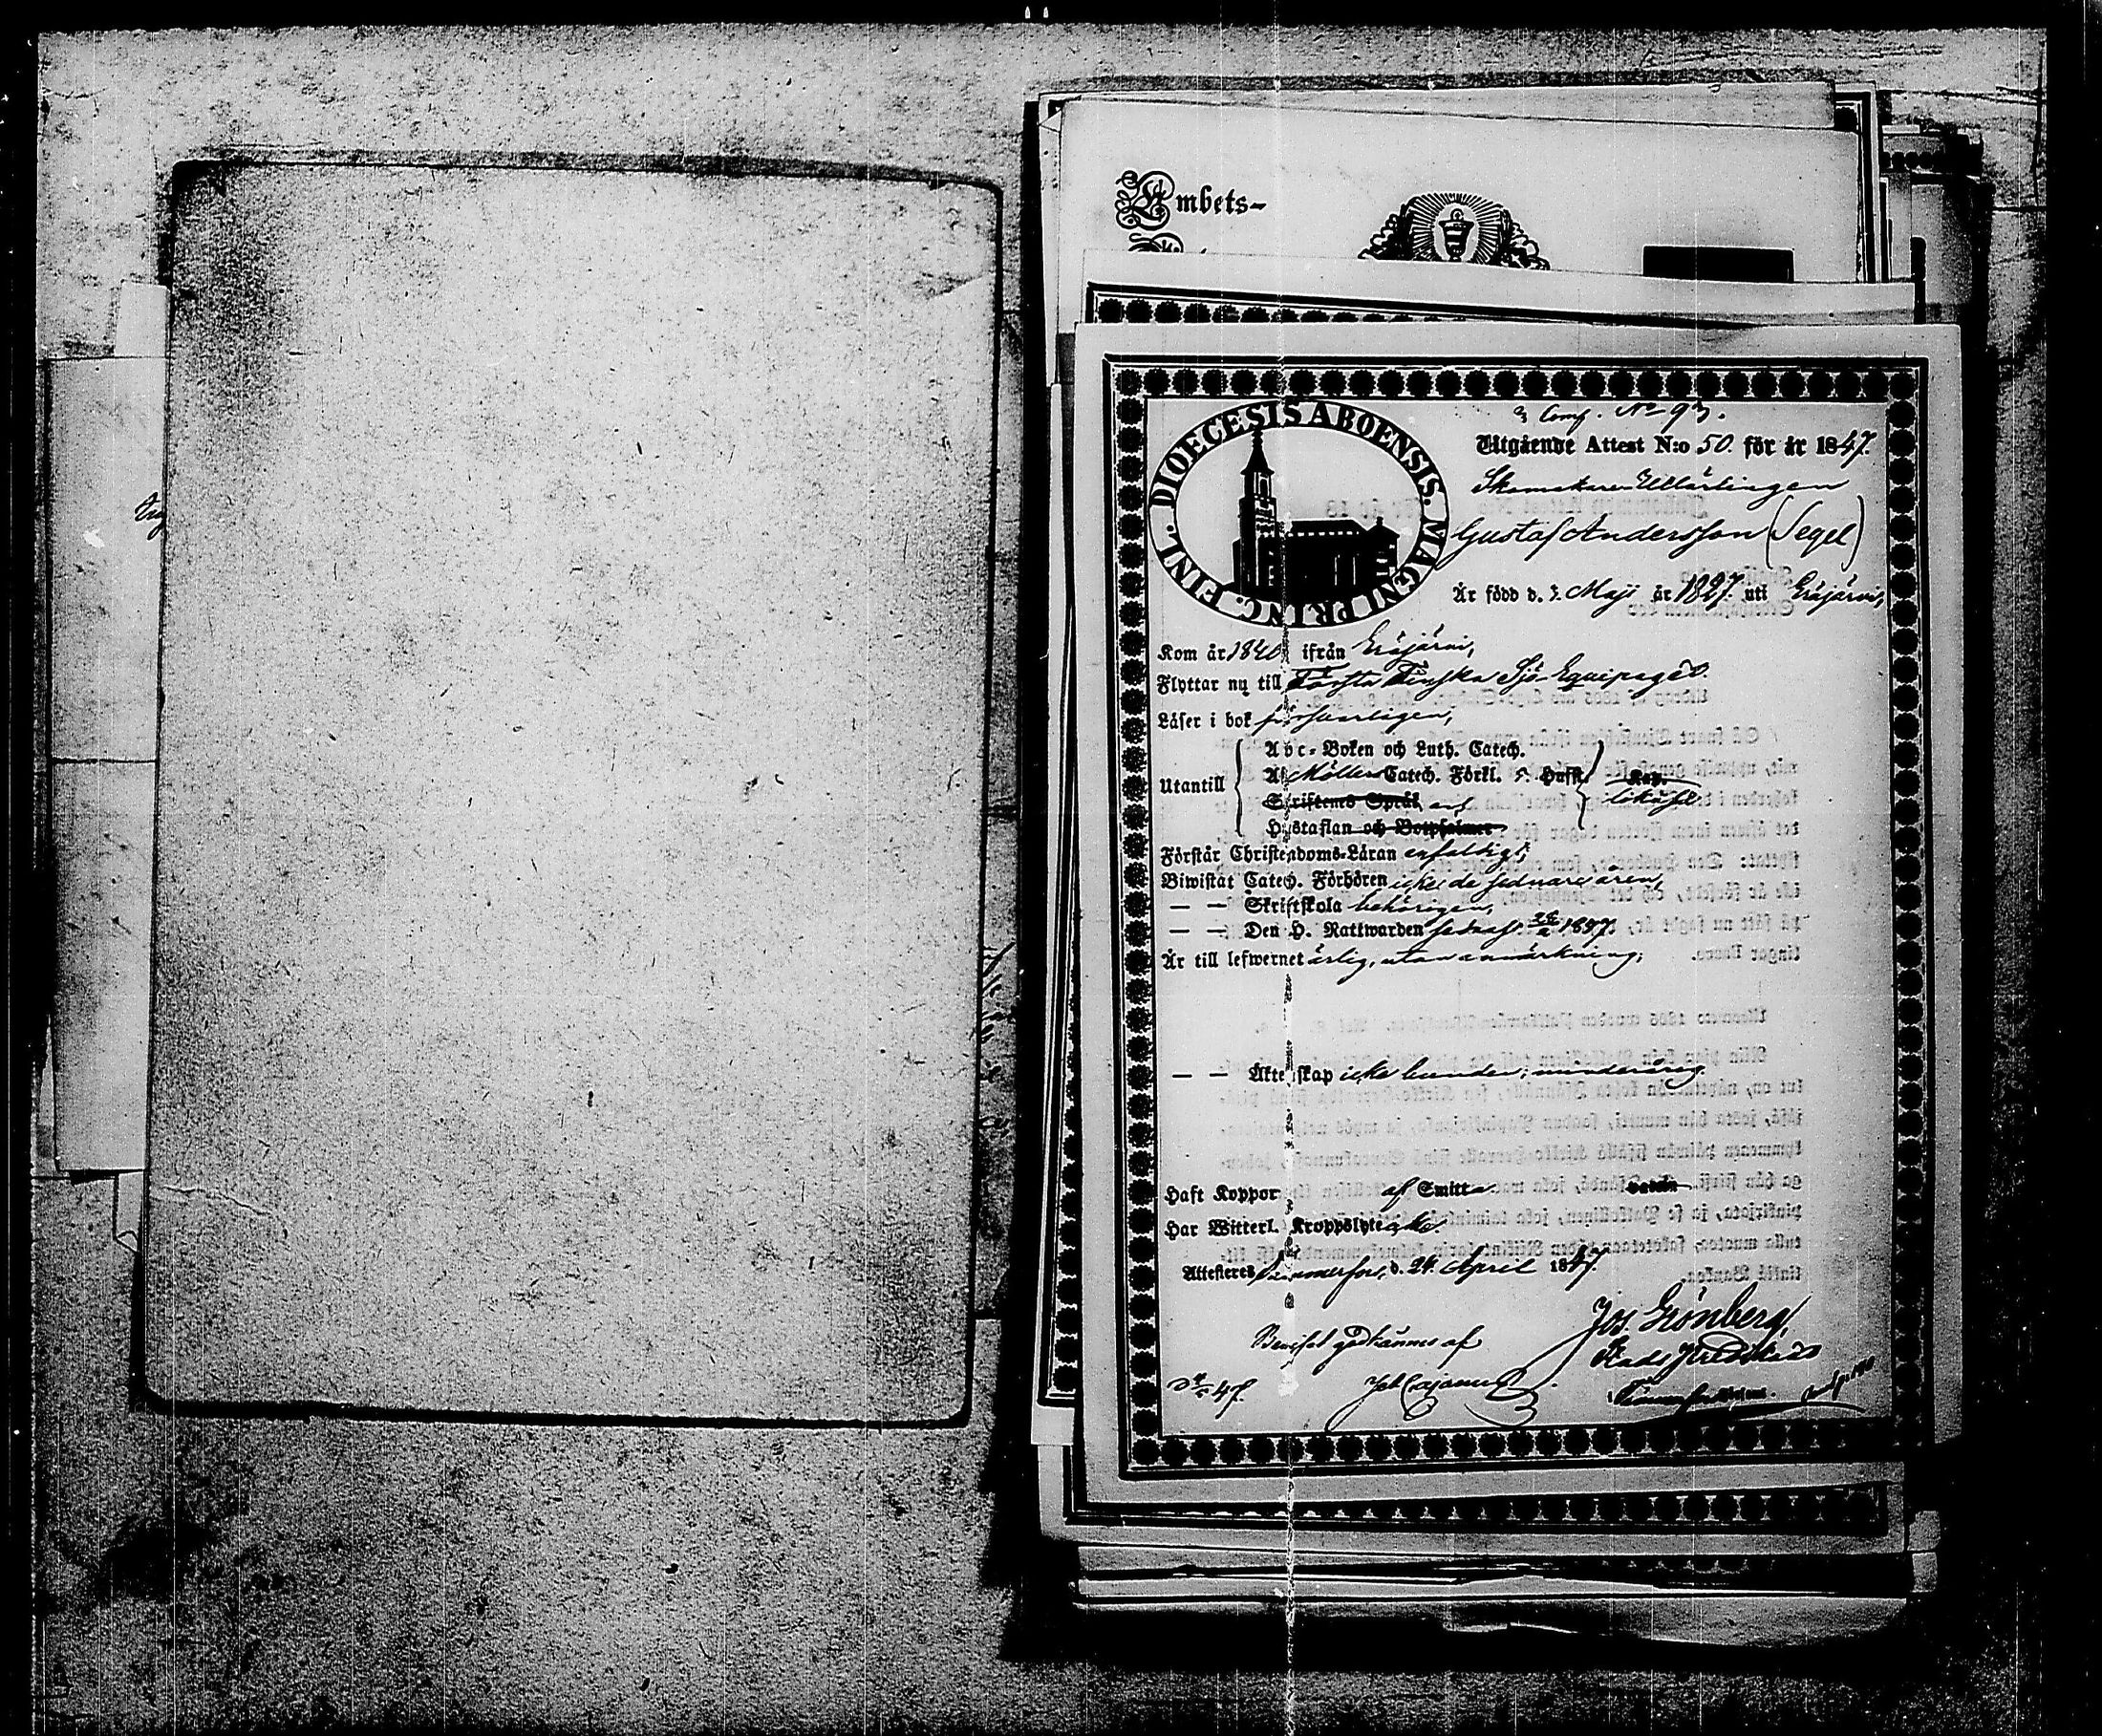 Embets-
3 Comp. No 93.
DIOECESIS ABOENSIS. MAGNI PRINC. FINL.
Utgående Attest N:o 50. för år 1847.
Skomakare Utlärlingen
Gustaf Andersson (Segel)
Är född d. 3. Maji år 1827. uti Eräjärvi,
Kom år 1840 ifrån Eräjärvi,
Flyttar nu till Första Finska Sjö Equipaget.
Läser i bok försvarligen,
Utantill
Abc-Boken och Luth. Catech.
A. Möllers Catech. Förkl. 5. Hufst.
Kap.
Skriftenes Språk och
likaså
Hustaflan och Botpsalmer
Förstår Christendoms-Läran enfaldigt;
Biwistat Catech. Förhören icke de sednare åren,
— — Skriftskola behörigen,
— — Den H. Nattwarden sednast 1847.
Är till lefwernet ärlig, utan anmärkning;
— — Äktenskap icke bunden; minderårig
Haft Koppor af Smitta
Har Witterl. Kroppslyte icke.
Attesteras Tammerfors, d. 24. April 1847.
Jos. Grönberg,
Beviset godkännes af
D 47.
Joh Cajanus